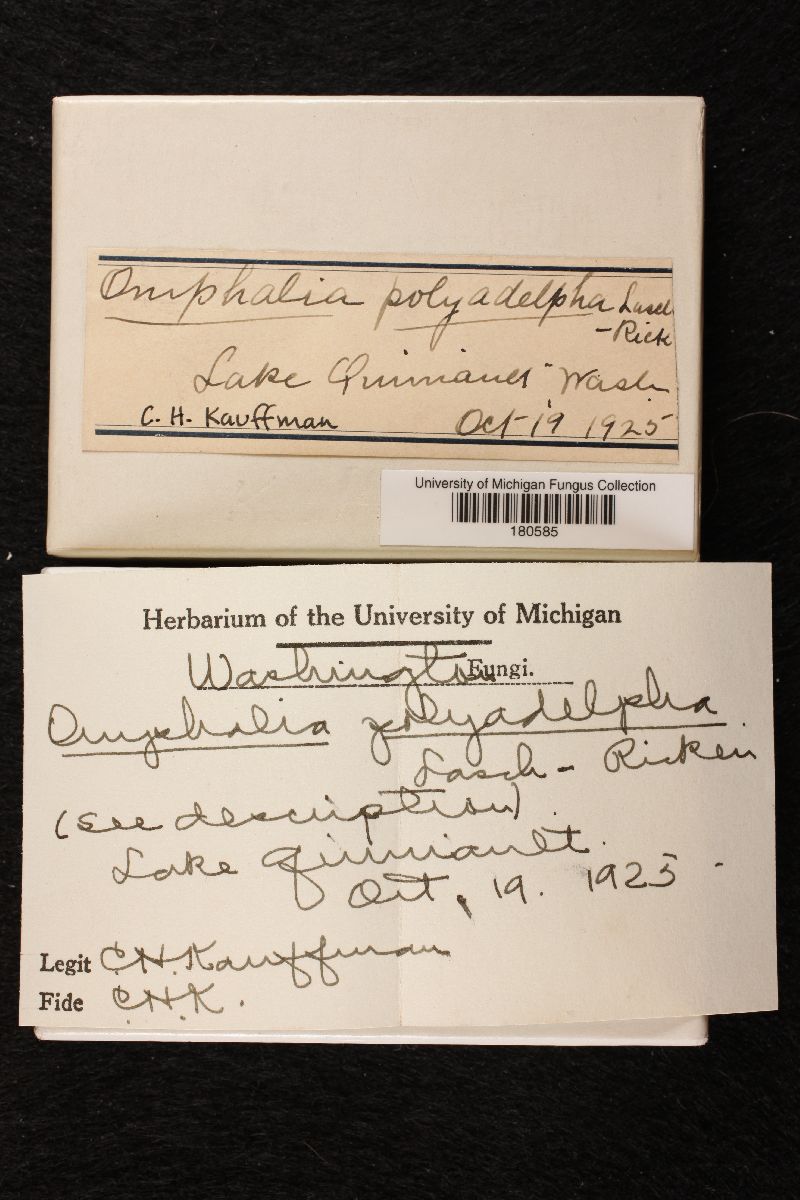 Omphalia polyadelpha Lasch
- Rick
Lake Quiniault Wash
C. H. Kauffman Oct 19 1925
University of Michigan Fungus Collection
180585
Herbarium of the University of Michigan
Washington Fungi.
Omphalia polyadelpha
Lasch - Ricken
(see description)
Lake Quiniault.
Oct, 19. 1925 -
Legit C.H.Kauffman
Fide C.H.K.